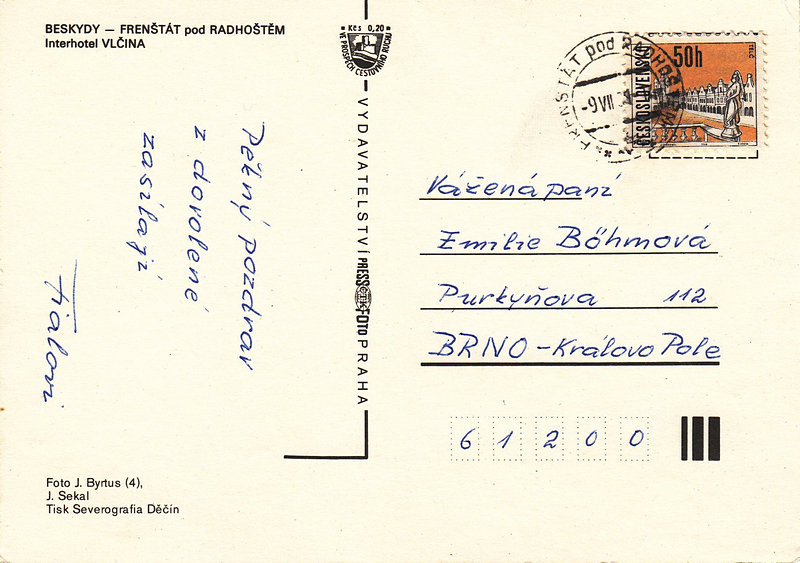 BESKYDY — FRENŠTÁT pod RADHOŠTĚM
Interhotel VLČINA
Kčs 0,20
VE PROSPĚCH CESTOVNÍHO RUCHU
Pěkný pozdrav
z dovolené
zasílají
Fialovi
Foto J. Byrtus (4),
J. Sekal
Tisk Severografia Děčín
VYDAVATELSTVÍ PRESSFOTO PRAHA
FRENŠTÁT pod RADHOŠTĚM
-9.VII
50h
TELČ
ČESKOSLOVENSKO
Vážená paní
Emilie Böhmová
Purkyňova 112
BRNO - Královo Pole
61200